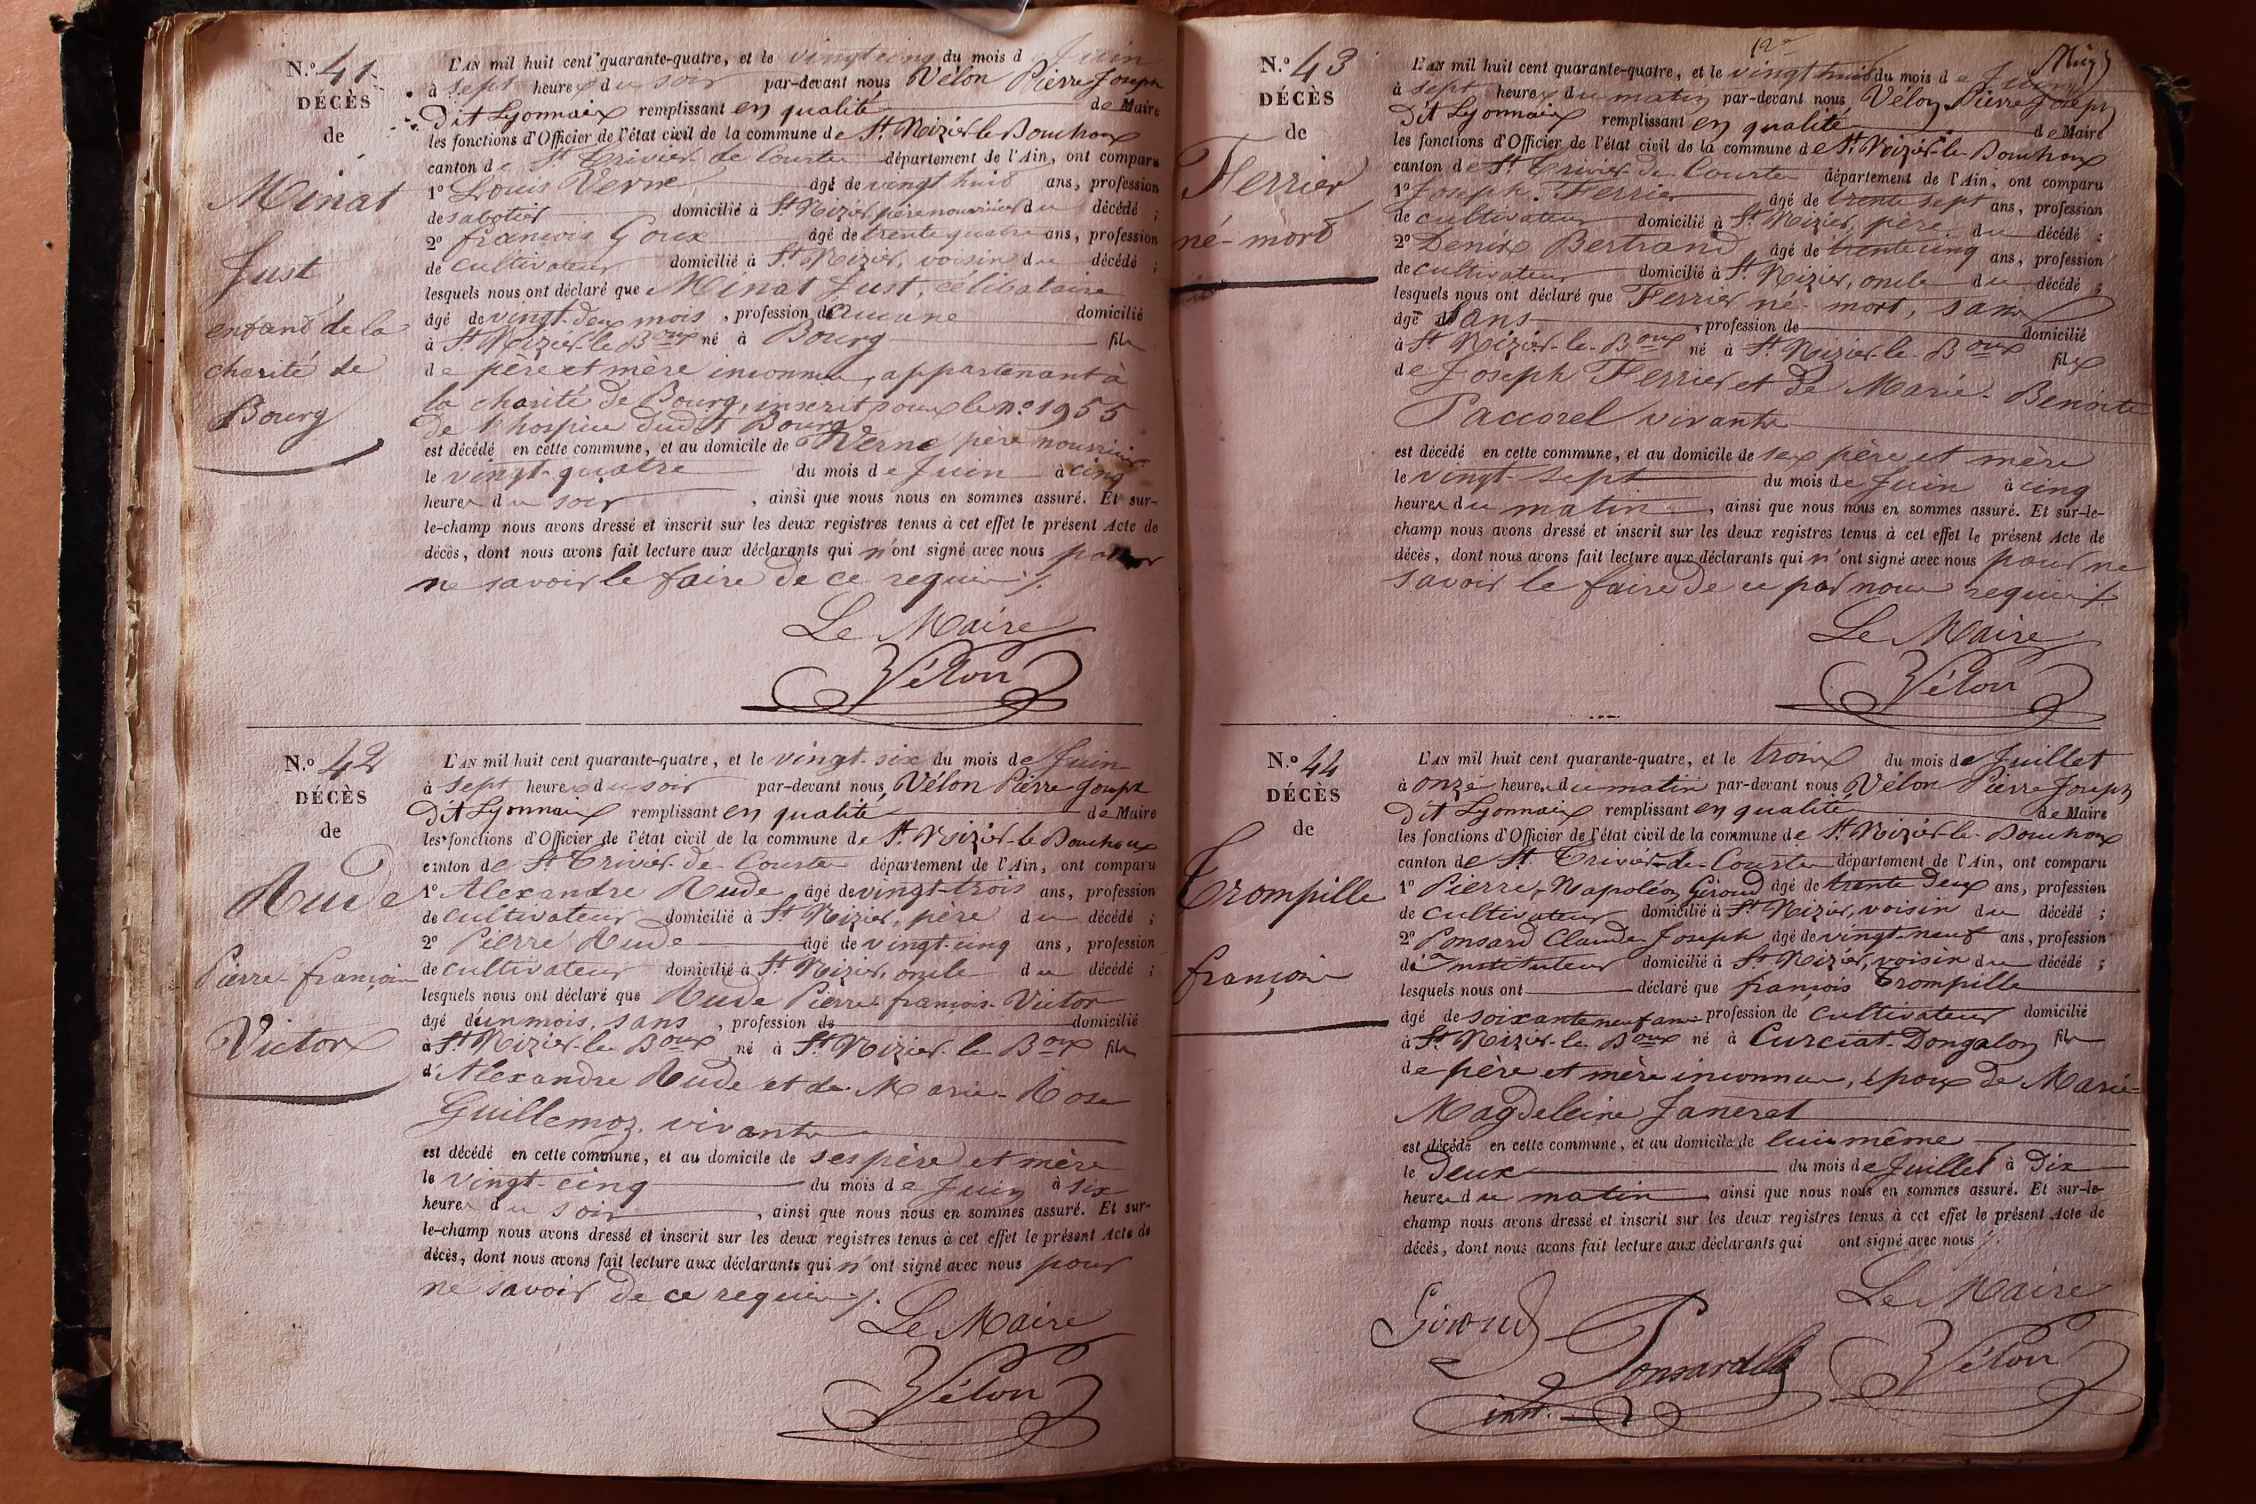 N.o 41.
DÉCÈS
de
Minat
Just
enfant de la
charité de
Bourg
L'AN mil huit cent quarante-quatre, et le vingt cinq du mois de Juin
à sept heures du soir par-devant nous Vélon Pierre Joseph
Dit Lyonnais remplissant en qualité de Maire
les fonctions d'Officier de l'état civil de la commune de St. Nizier-le-Bouchoux
canton de St. Trivier de Courtes département de l'Ain, ont comparu
1o Louis Verne, âgé de vingt huit ans, profession
de sabotier domicilié à St. Nizier, père nourricier du décédé ;
2o françois Goux âgé de trente quatre ans, profession
de cultivateur domicilié à St. Nizier, voisin du décédé ;
lesquels nous ont déclaré que Minat Just, célibataire
âgé de vingt-deux mois, profession d'aucune domicilié
à St. Nizier-le-Boux né à Bourg fils
de père et mère inconnus, appartenant à
la charité de Bourg, inscrit sous le no. 1955
de l'hospice dudit Bourg
est décédé en cette commune, et au domicile de Verne père nourricier
le vingt-quatre du mois de Juin à cinq
heures du soir, ainsi que nous nous en sommes assuré. Et sur-
le-champ nous avons dressé et inscrit sur les deux registres tenus à cet effet le présent Acte de
décès, dont nous avons fait lecture aux déclarants qui n'ont signé avec nous pour
ne savoir le faire de ce requis ./.
Le Maire
Vélon
N.o 42
DÉCÈS
de
Rude
Pierre françois
Victor
L'AN mil huit cent quarante-quatre, et le vingt-six du mois de Juin
à sept heures du soir par-devant nous, Vélon Pierre Joseph
Dit Lyonnais remplissant en qualité de Maire
les fonctions d'Officier de l'état civil de la commune de St. Nizier-le-Bouchoux
canton de St. Trivier-de-Courtes département de l'Ain, ont comparu
1o Alexandre Rude, âgé de vingt-trois ans, profession
de cultivateur domicilié à St. Nizier, père du décédé ;
2o Pierre Rude âgé de vingt-cinq ans, profession
de cultivateur domicilié à St. Nizier, oncle du décédé ;
lesquels nous ont déclaré que Rude Pierre françois-Victor
âgé d'un mois, sans, profession de domicilié
à St. Nizier-le-Boux né à St. Nizier-le-Boux fils
d'Alexandre Rude et de Marie-Rose
Guillemoz, vivants
est décédé en cette commune, et au domicile de ses père et mère
le vingt-cinq du mois de Juin à six
heures du soir, ainsi que nous nous en sommes assuré. Et sur-
le-champ nous avons dressé et inscrit sur les deux registres tenus à cet effet le présent Acte de
décès, dont nous avons fait lecture aux déclarants qui n'ont signé avec nous pour
ne savoir de ce requis ./.
Le Maire
Vélon
N.o 43
DÉCÈS
de
Ferrier
né-mort
L'AN mil huit cent quarante-quatre, et le vingt huit du mois de Juin
à sept heures du matin par-devant nous, Vélon Pierre Joseph
Dit Lyonnais remplissant en qualité de Maire
les fonctions d'Officier de l'état civil de la commune de St. Nizier-le-Bouchoux
canton de St. Trivier de Courtes département de l'Ain, ont comparu
1o Joseph Ferrier âgé de trente sept ans, profession
de cultivateur domicilié à St. Nizier, père du décédé ;
2o Denix Bertrand âgé de trente cinq ans, profession
de cultivateur domicilié à St. Nizier, oncle du décédé ;
lesquels nous ont déclaré que Ferrier né-mort, sans
âgé de sans, profession de domicilié
à St. Nizier-le-Boux né à St. Nizier-le-Boux fils
de Joseph Ferrier et de Marie-Benoite
Paccorel vivants
est décédé en cette commune, et au domicile de ses père et mère
le vingt-sept du mois de Juin à cinq
heures du matin, ainsi que nous nous en sommes assuré. Et sur-le-
champ nous avons dressé et inscrit sur les deux registres tenus à cet effet le présent Acte de
décès, dont nous avons fait lecture aux déclarants qui n'ont signé avec nous pour ne
savoir le faire de ce par nous requis ./.
Le Maire
Vélon
N.o 44
DÉCÈS
de
Trompille
françois
L'AN mil huit cent quarante-quatre, et le trois du mois de Juillet
à onze heures du matin par-devant nous Vélon Pierre Joseph
Dit Lyonnais remplissant en qualité de Maire
les fonctions d'Officier de l'état civil de la commune de St. Nizier-le-Bouchoux
canton de St. Trivier-de-Courtes département de l'Ain, ont comparu
1o Pierre, Napoléon Giroud âgé de trente Deux ans, profession
de cultivateur domicilié à St. Nizier, voisin du décédé ;
2o Ponsard Claude Joseph âgé de vingt-neuf ans, profession
d'instituteur domicilié à St. Nizier, voisin du décédé ;
lesquels nous ont déclaré que françois Trompille
âgé de soixante neuf ans profession de cultivateur domicilié
à St. Nizier-le-Boux né à Curciat-Dongalon fils
de père et mère inconnus, époux de Marie-
Magdeleine Janeret
est décédé en cette commune, et au domicile de lui même
le Deux du mois de Juillet à Dix
heures du matin, ainsi que nous nous en sommes assuré. Et sur-le-
champ nous avons dressé et inscrit sur les deux registres tenus à cet effet le présent Acte de
décès, dont nous avons fait lecture aux déclarants qui ont signé avec nous ./.
Le Maire
Giroud
Ponsard
Vélon
inst.